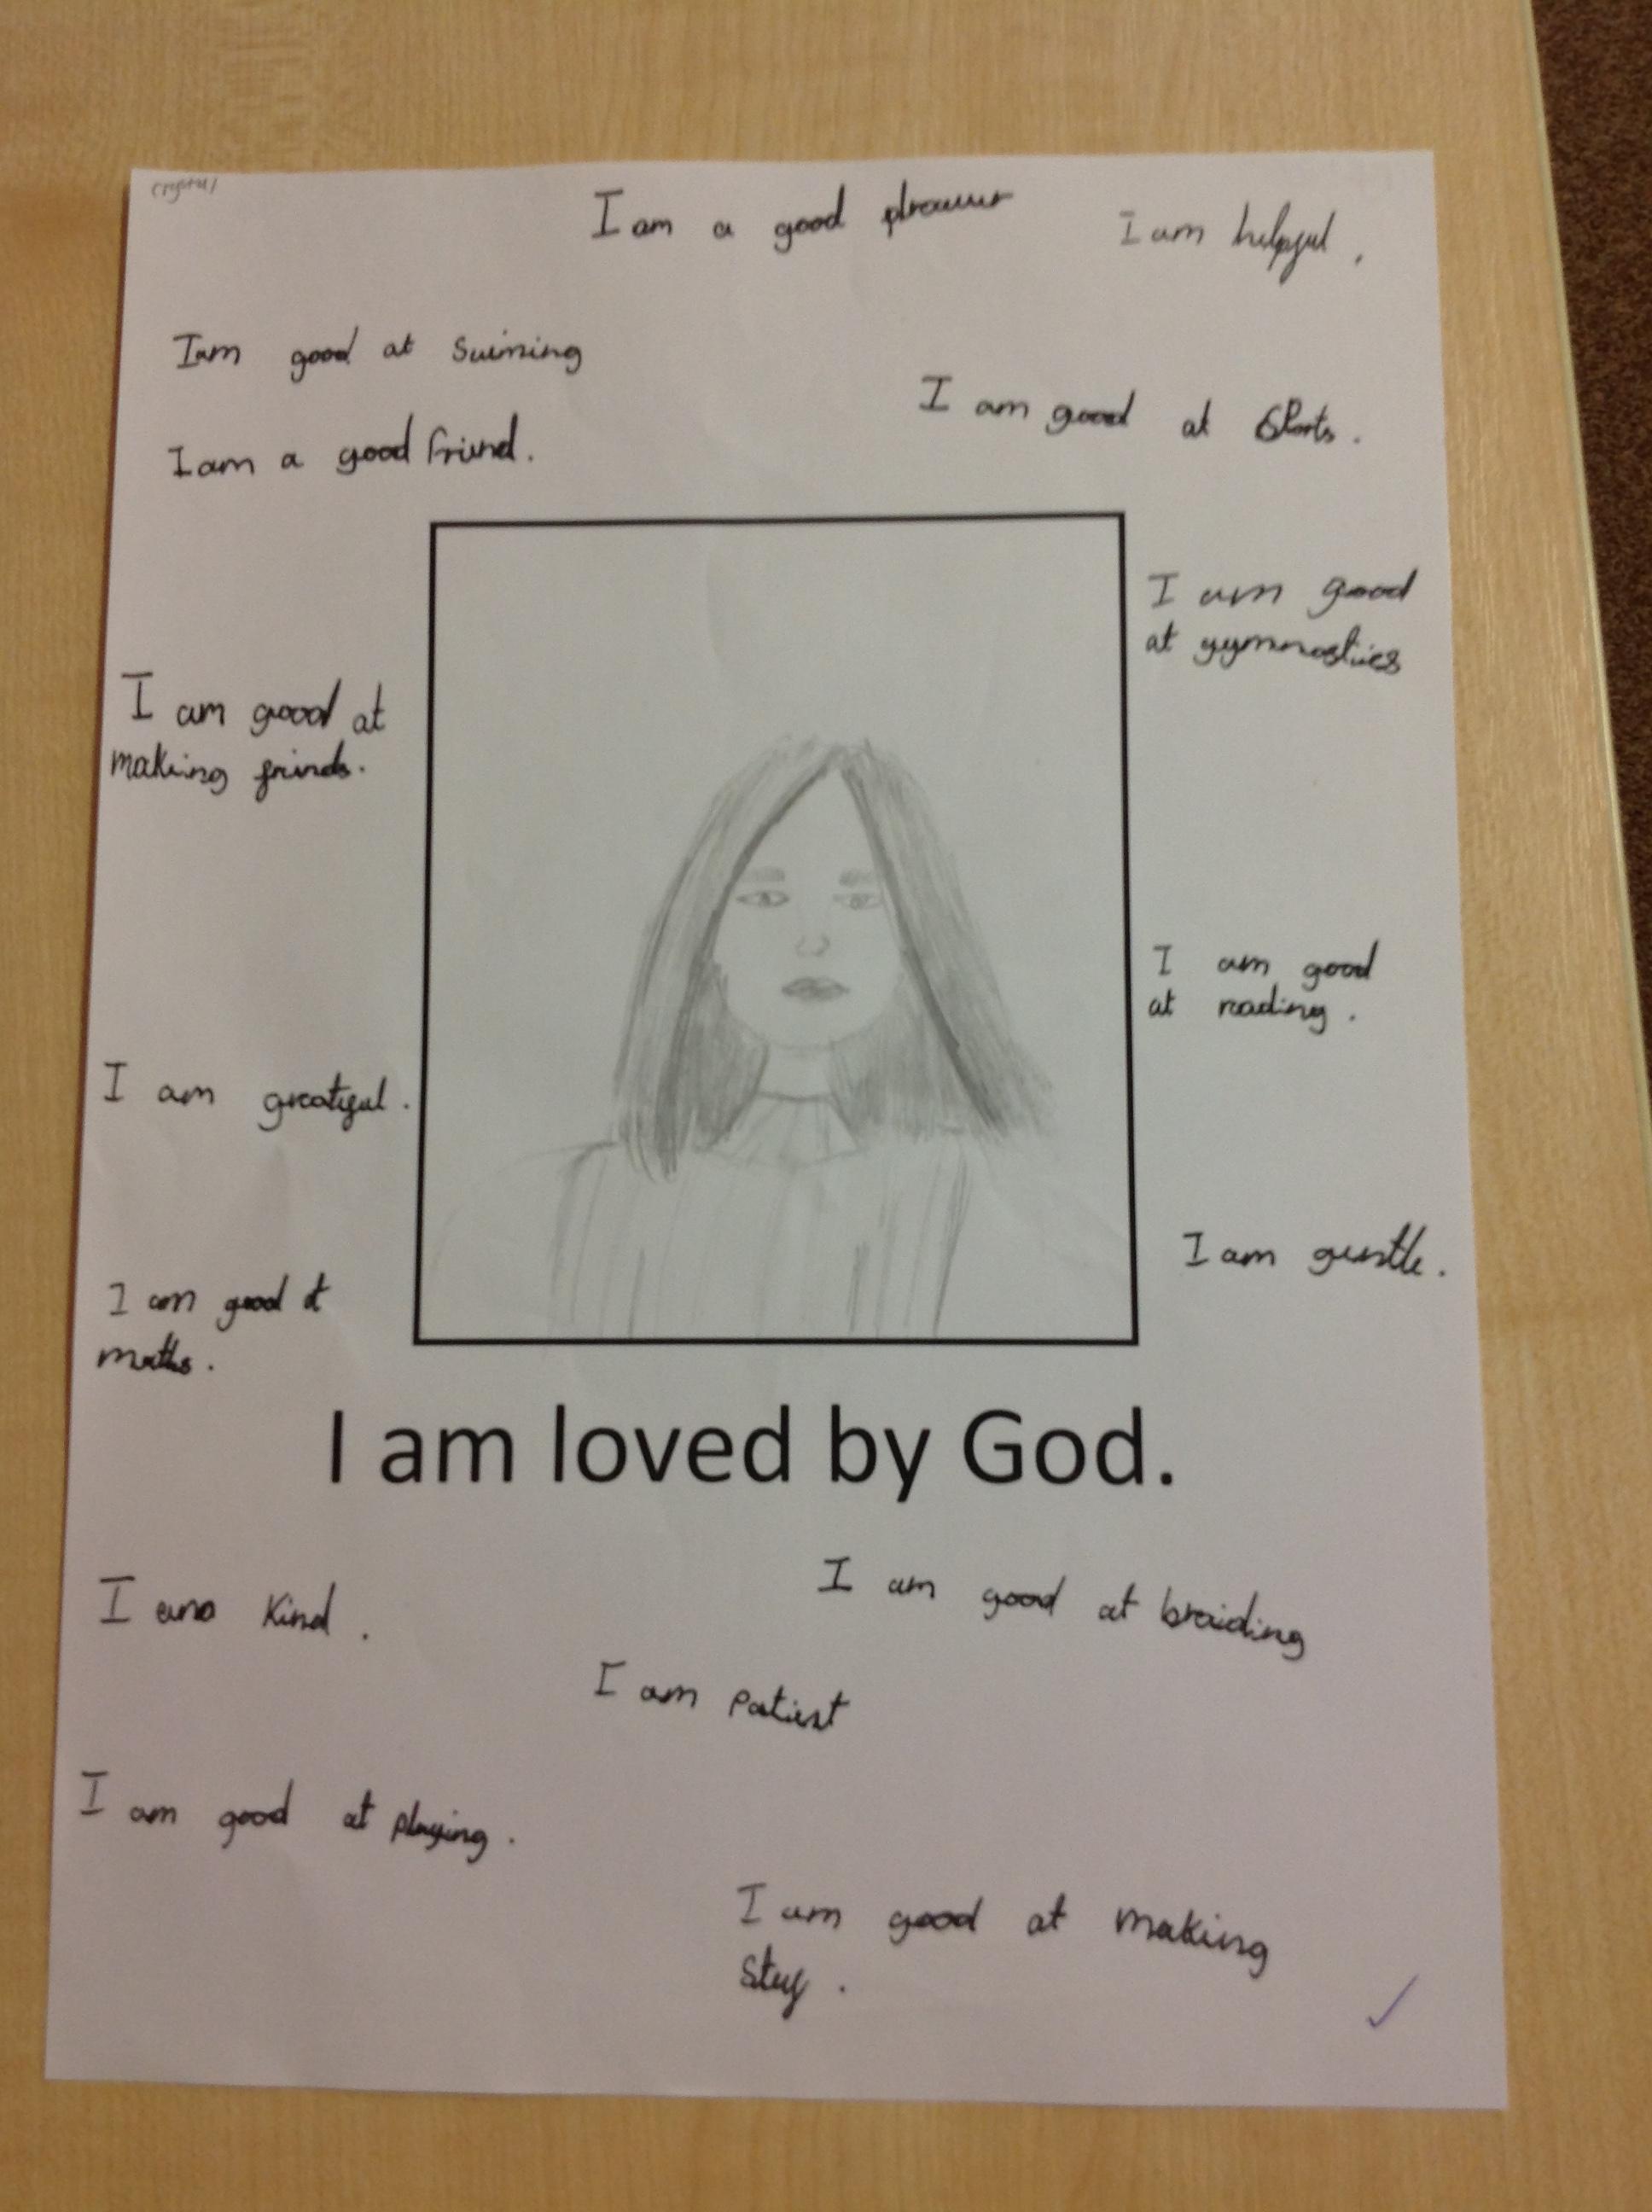 Crystal
I am a good drawer
I am helpful.
I am good at Swiming
I am good at Sports.
I am a good friend.
I am good
at gymnastics
I am good at
making frinds.
I am good
at reading.
I am greatful.
I am gentle.
I am good at
maths.
I am loved by God.
I am Kind.
I am good at braiding
I am Patient
I am good at playing.
I am good at making
Stuf.